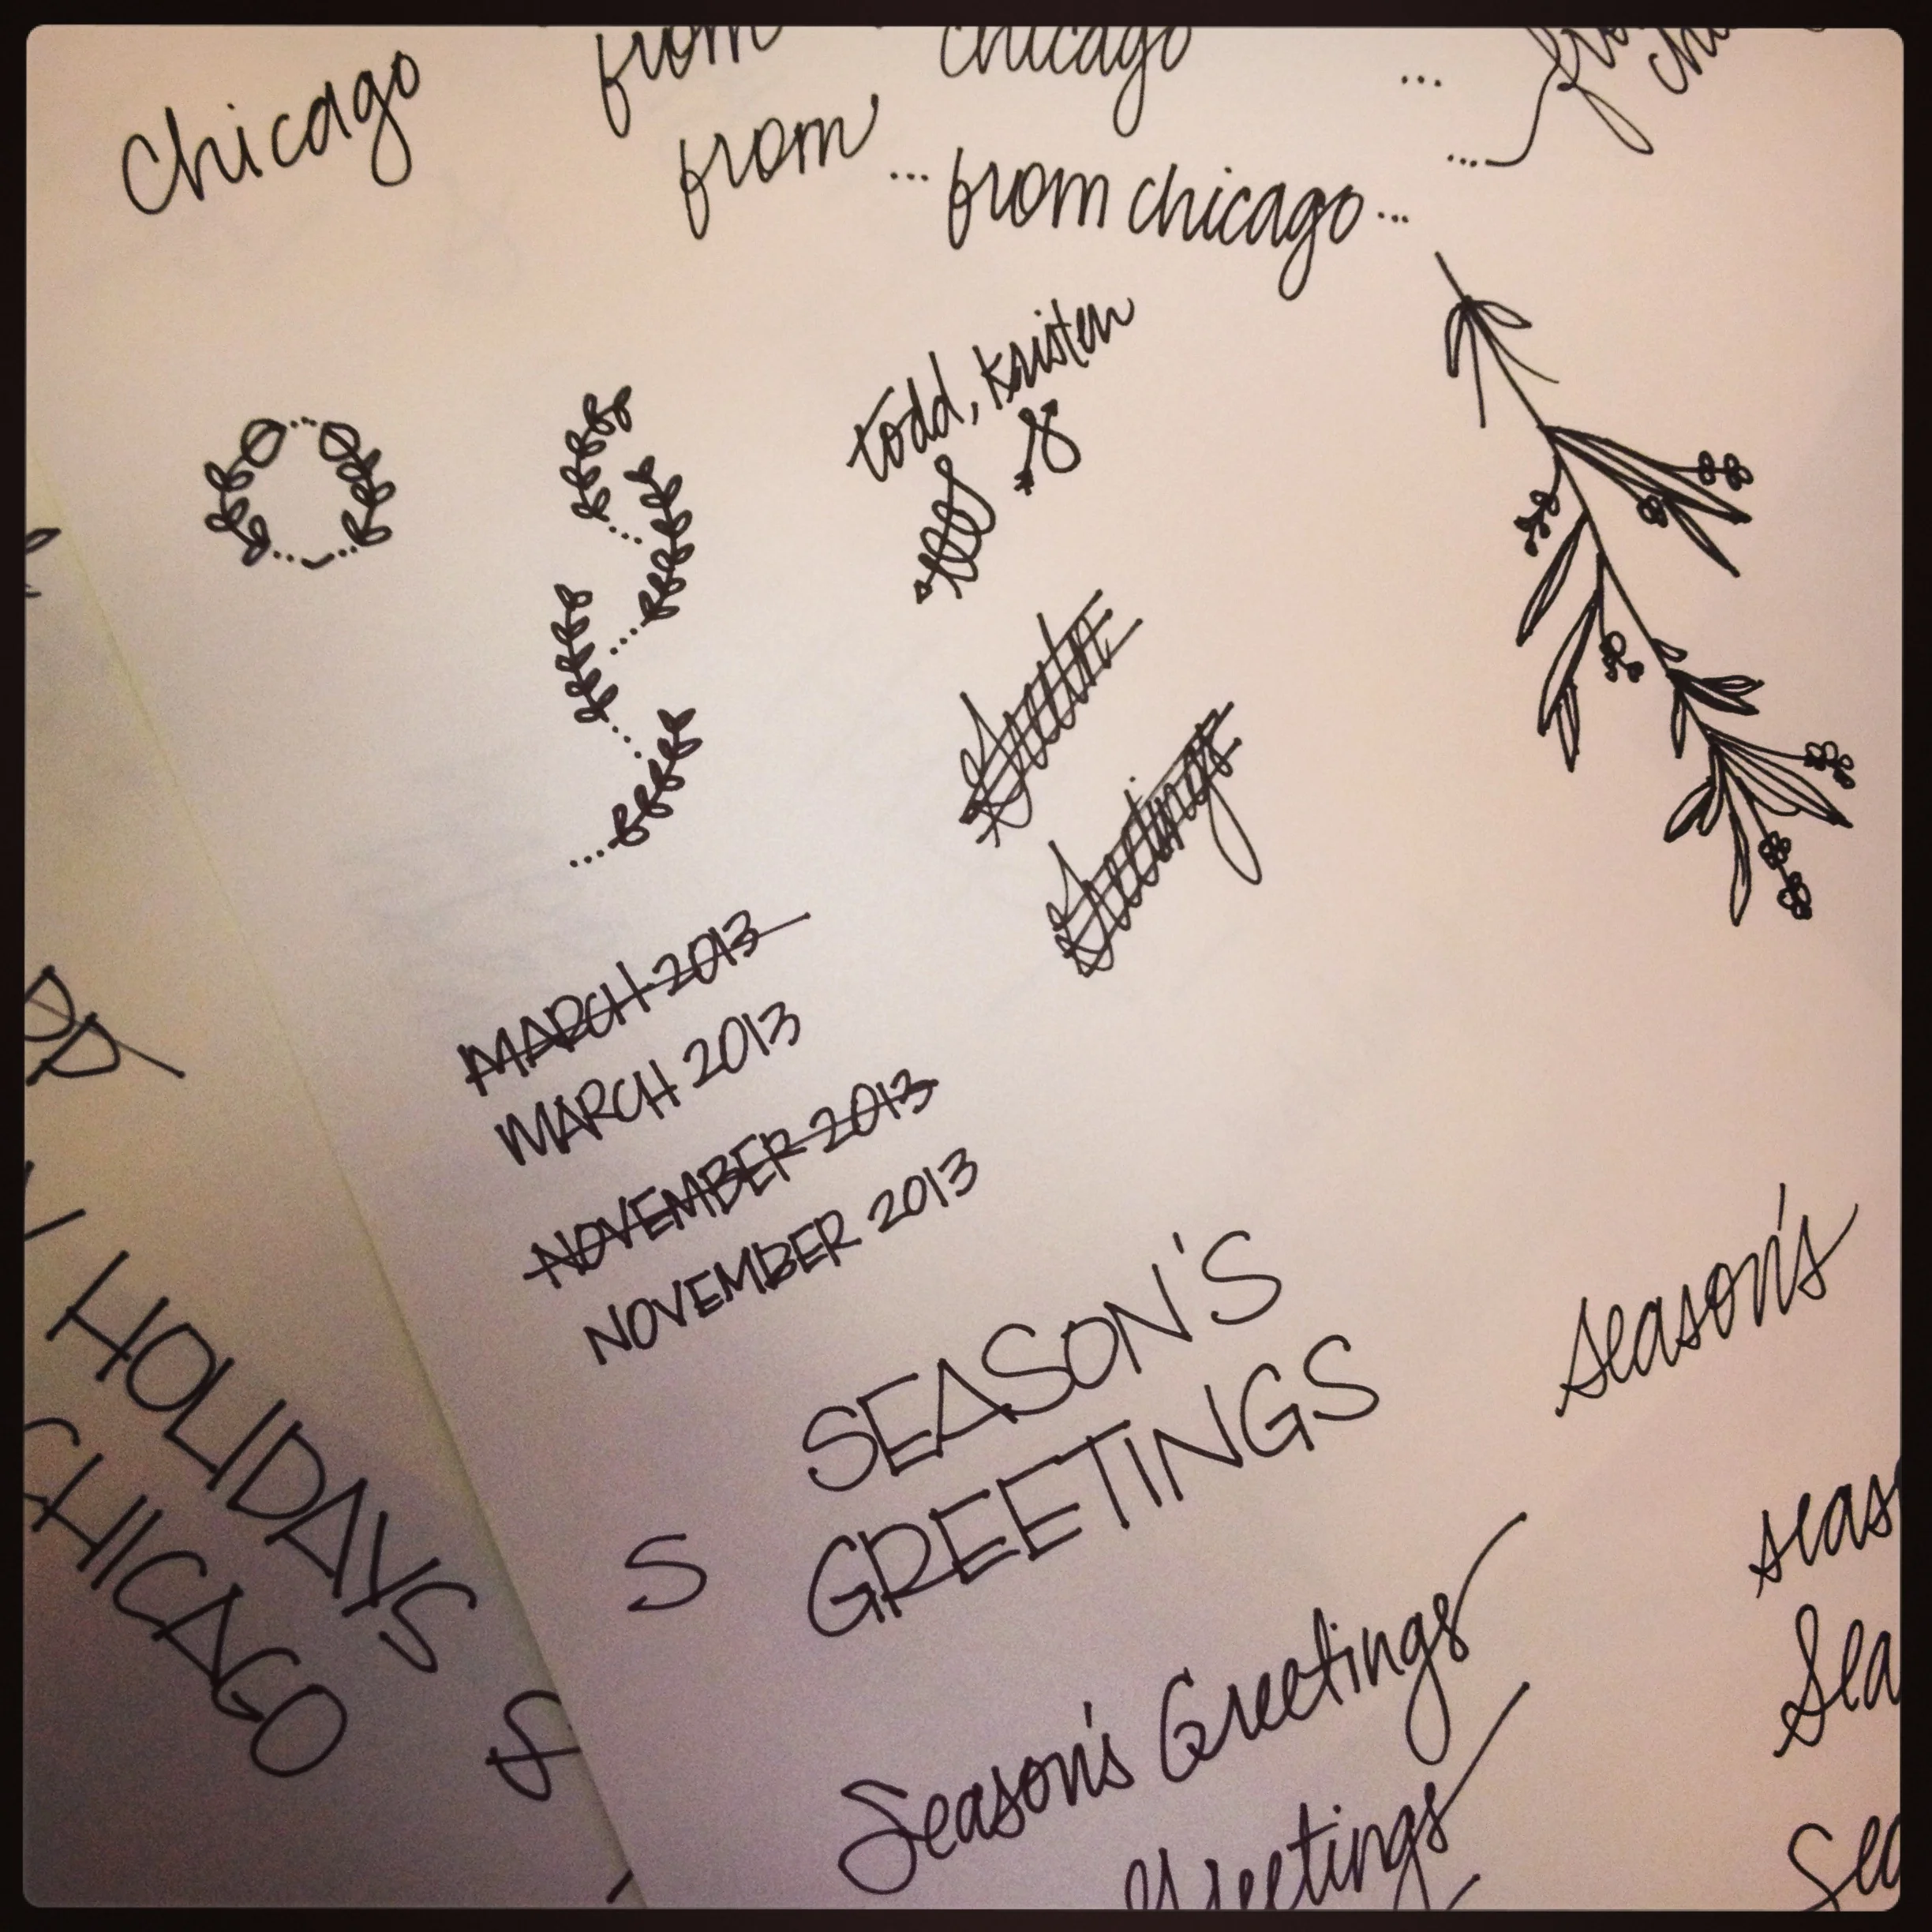 Chicago
from
chicago
from
... from chicago ...
todd, kristen
Greetings
MARCH 2013
MARCH 2013
NOVEMBER 2013
NOVEMBER 2013
SEASON'S
GREETINGS
S
season's
Season's Greetings
Greetings
HOLIDAYS
CHICAGO
&